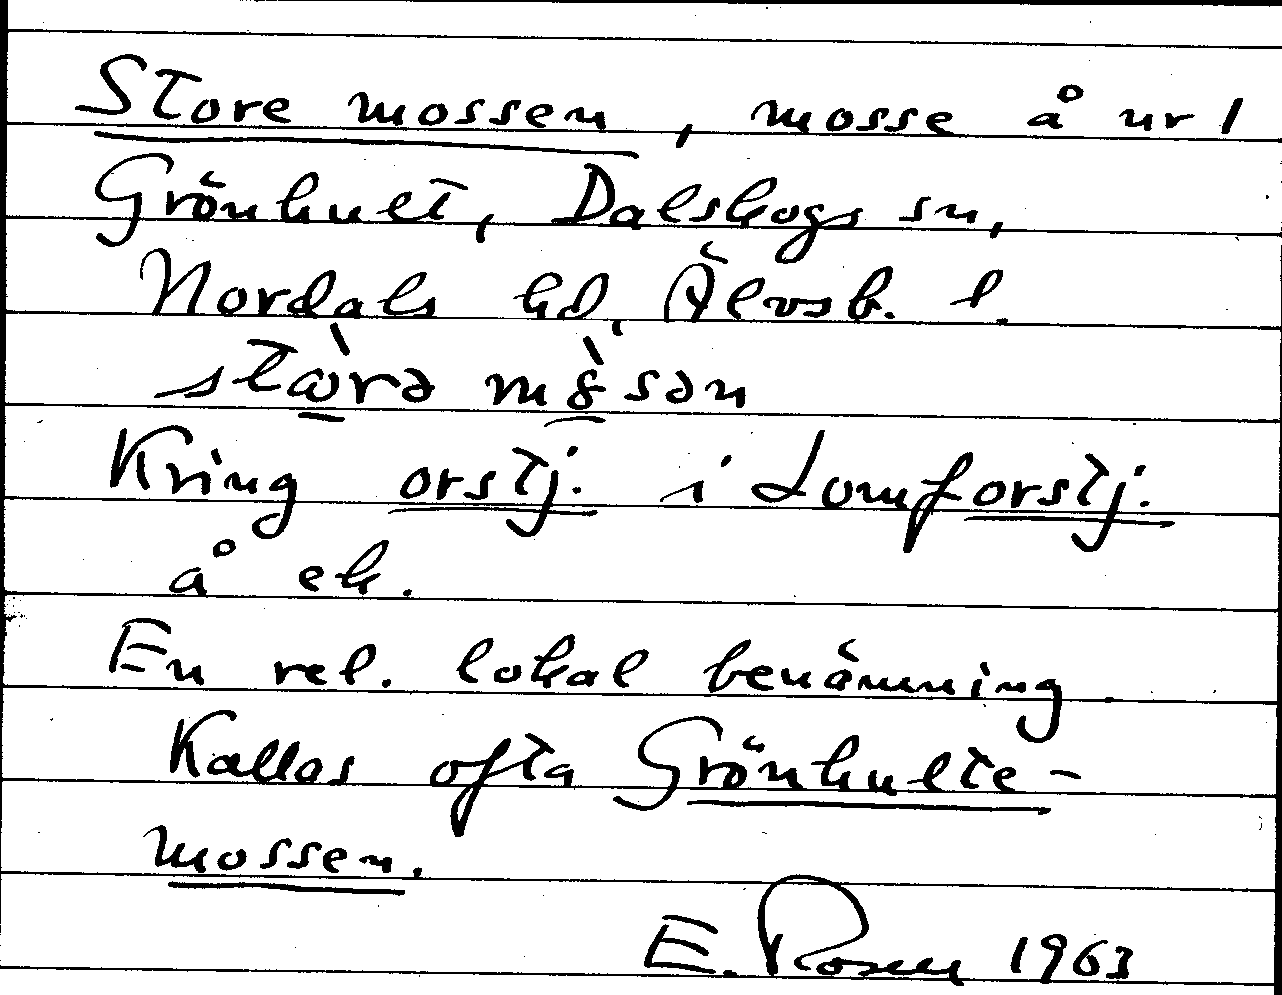 Store mossen, mosse å nr 1
Grönhult, Dalskogs sn,
Nordals hd, Älvsb. l.
stⱥ̀rə mȣ̀sən
Kring orstj. i Lomforstj.
å ek.
En rel. lokal benämning.
Kallas ofta Grönhulte-
mossen.
E. Rosell 1963